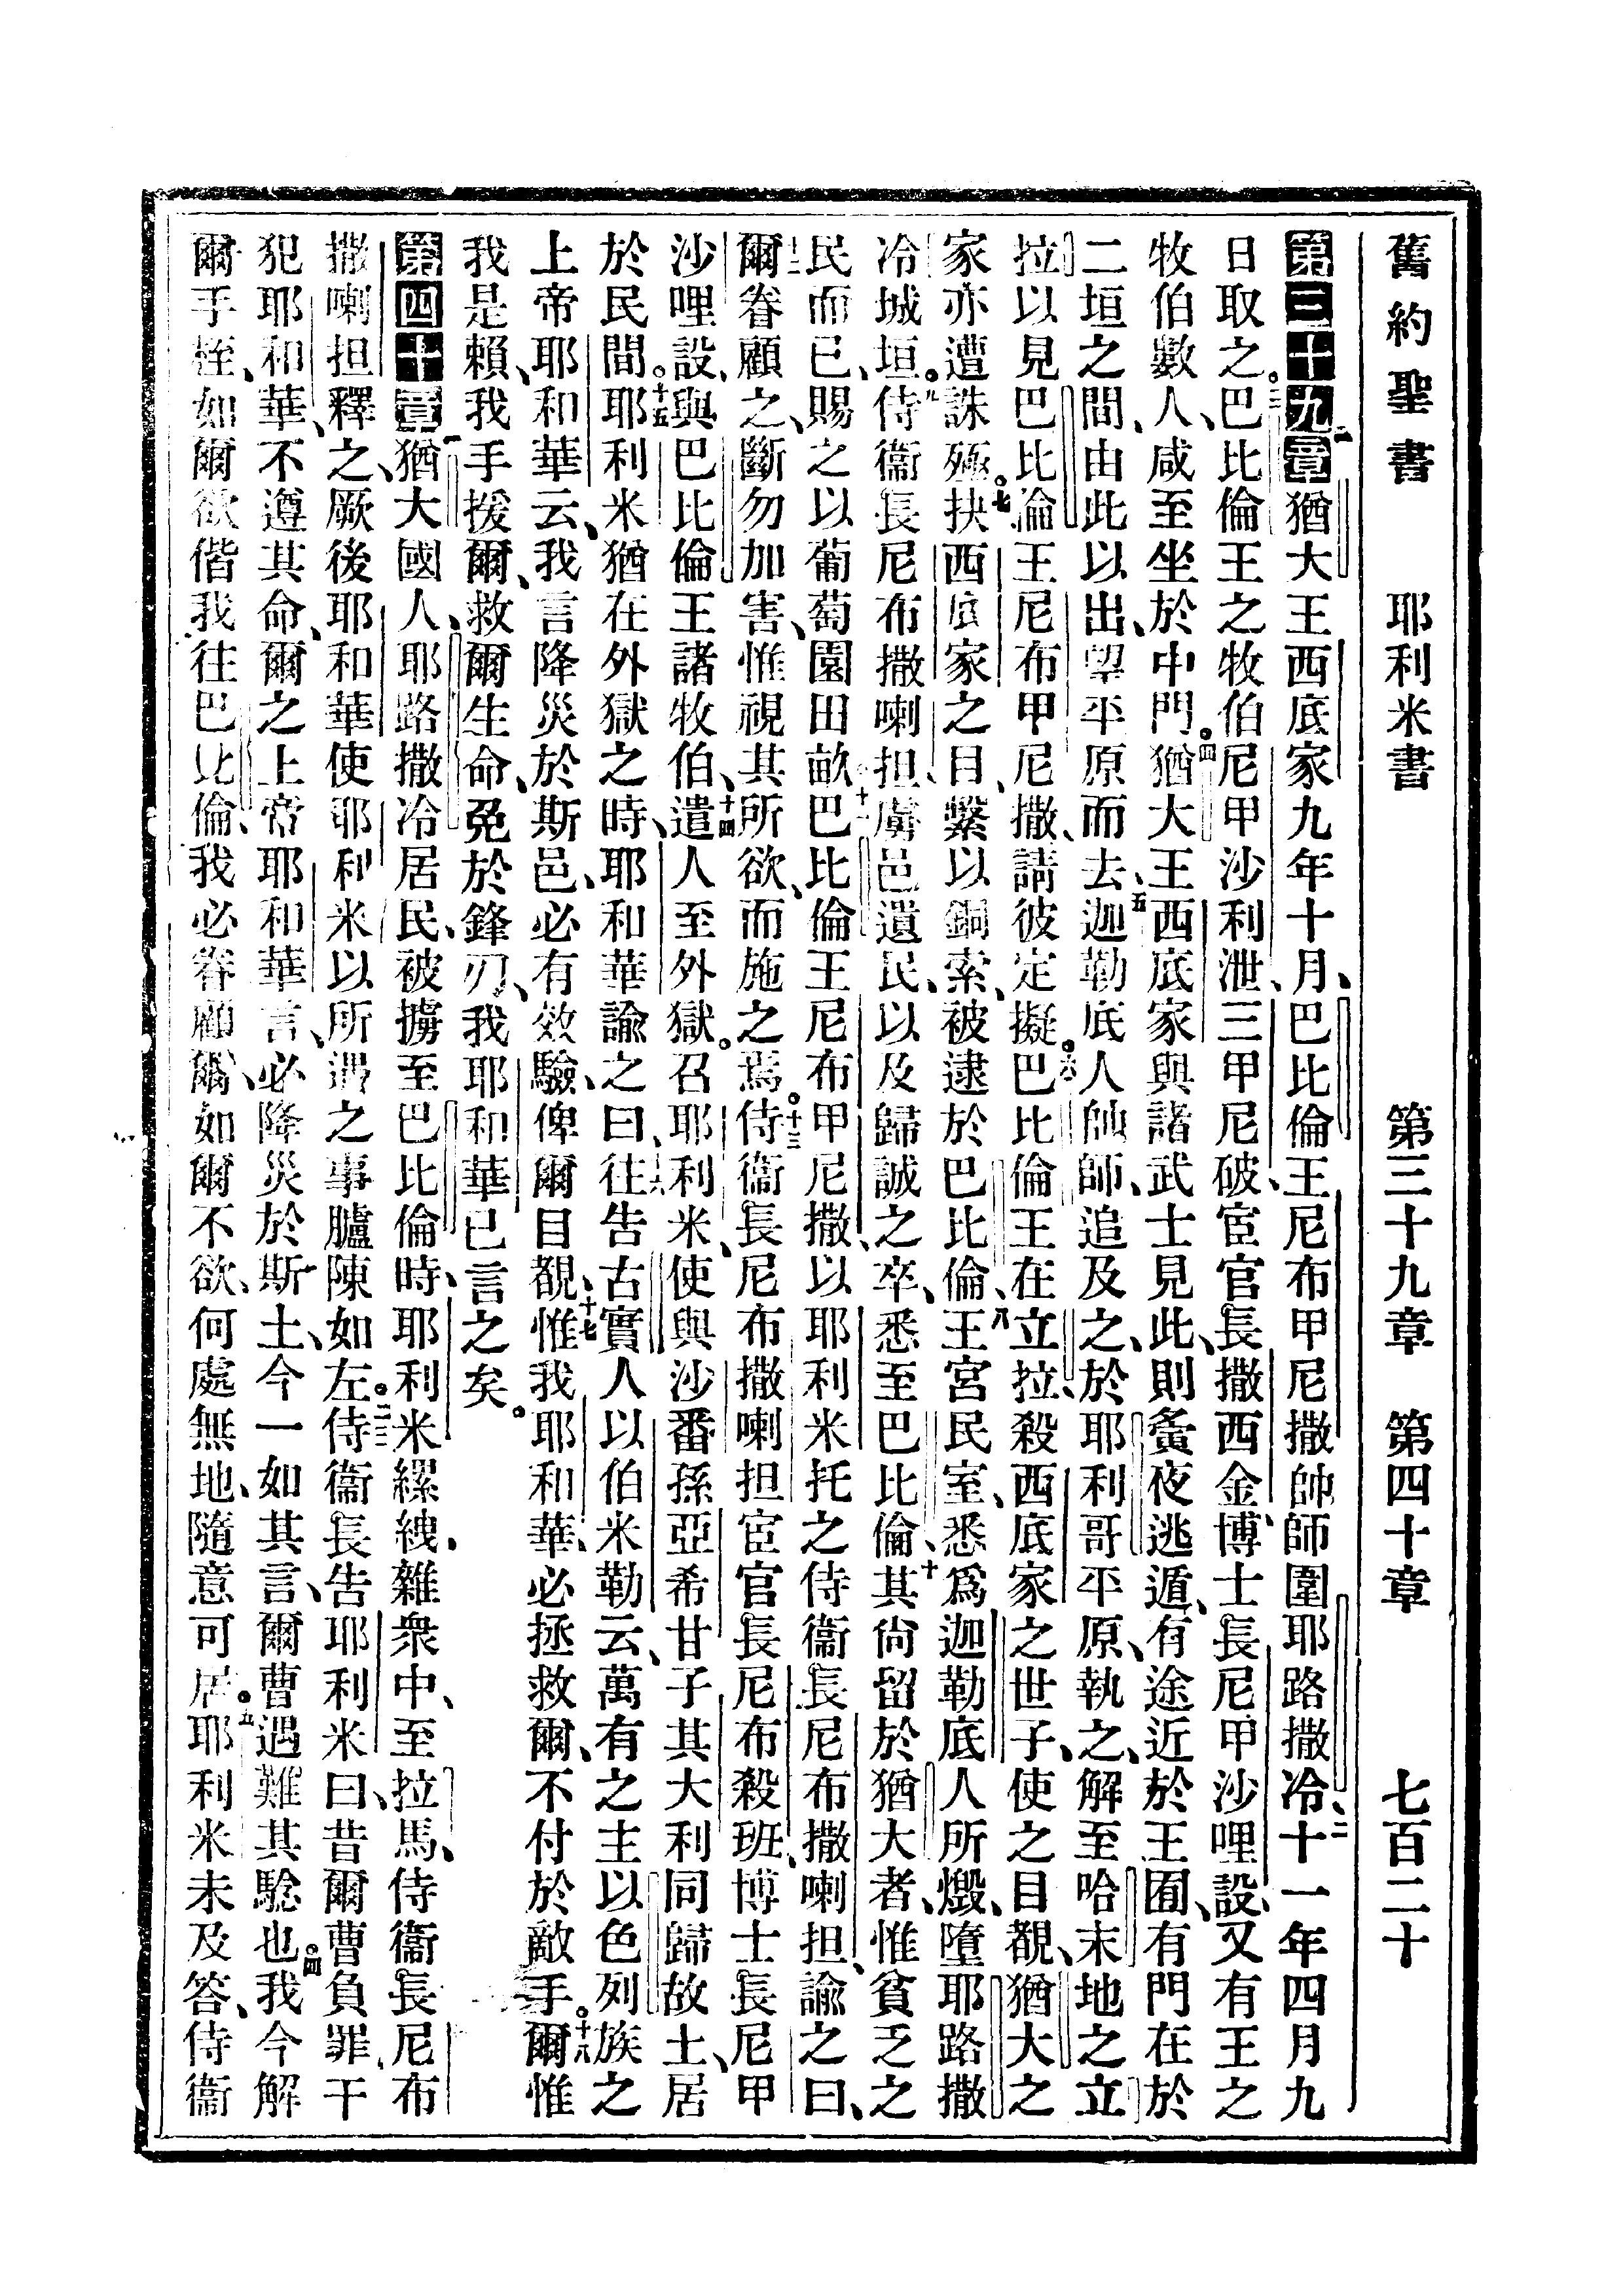 舊約聖書 耶利米書 第三十九章 第四十章 七百二十
第三十九章一猶大王西底家九年十月、巴比倫王尼布甲尼撒帥師圍耶路撒冷、二十一年四月九
日取之。三巴比倫王之牧伯尼甲沙利泄、三甲尼破、宦官長撒西金、博士長尼甲沙哩設、又有王之
牧伯數人、咸至坐於中門。四猶大王西底家與諸武士見此、則夤夜逃遁、有途近於王囿、有門在於
二垣之間、由此以出、望平原而去、五迦勒底人帥師、追及之、於耶利哥平原、執之、解至哈末地之立
拉以見巴比倫王尼布甲尼撒、請彼定擬。六巴比倫王在立拉、殺西底家之世子、使之目覩、猶大之
家亦遭誅殛。七抉西底家之目、縶以銅索、被逮於巴比倫、八王宮民室、悉爲迦勒底人所燬、墮耶路撒
冷城垣。九侍衞長尼布撒喇担、虜邑遺民、以及歸誠之卒、悉至巴比倫、十其尙留於猶大者、惟貧乏之
民而已、賜之以葡萄園田畝。十一巴比倫王尼布甲尼撒、以耶利米托之侍衞長尼布撒喇担、諭之曰、
十二爾眷顧之、斷勿加害、惟視其所欲、而施之焉。十三侍衞長尼布撒喇担宦官長尼布殺班、博士長尼甲
沙哩設、與巴比倫王諸牧伯、十四遣人至外獄。召耶利米、使與沙番孫亞希甘子其大利同歸故土、居
於民間。十五耶利米猶在外獄之時、耶和華諭之曰、十六往告古實人以伯米勒云、萬有之主以色列族之
上帝耶和華云、我言降災於斯邑、必有效驗、俾爾目覩、十七惟我耶和華、必拯救爾、不付於敵手。十八爾惟
我是賴、我手援爾、救爾生命、免於鋒刃、我耶和華已言之矣。
第四十章一猶大國人、耶路撒冷居民、被擄至巴比倫時、耶利米縲絏、雜衆中、至拉馬、侍衞長尼布
撒喇担釋之、厥後耶和華使耶利米以所遇之事臚陳如左。二三侍衞長告耶利米曰、昔爾曹負罪、干
犯耶和華、不遵其命、爾之上帝耶和華言、必降災於斯土、今一如其言、爾曹遇難其騐也。四我今解
爾手桎、如爾欲偕我往巴比倫、我必眷顧爾、如爾不欲、何處無地、隨意可居。五耶利米未及答、侍衞